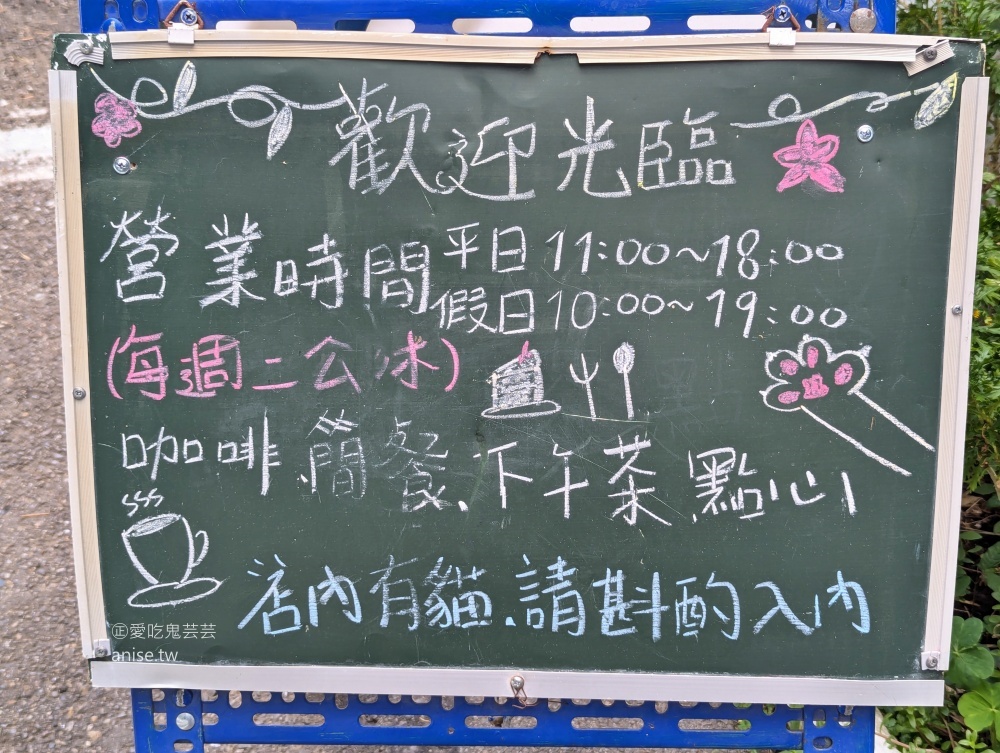 歡迎光臨
營業時間 平日 11:00~18:00
假日 10:00~19:00
(每週二公休)
咖啡.簡餐.下午茶.點心
店內有貓.請斟酌入內
㊣愛吃鬼芸芸
anise.tw